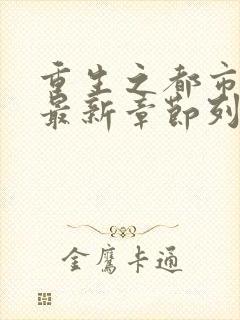 重生之都市
最新章节列
金鹰卡通